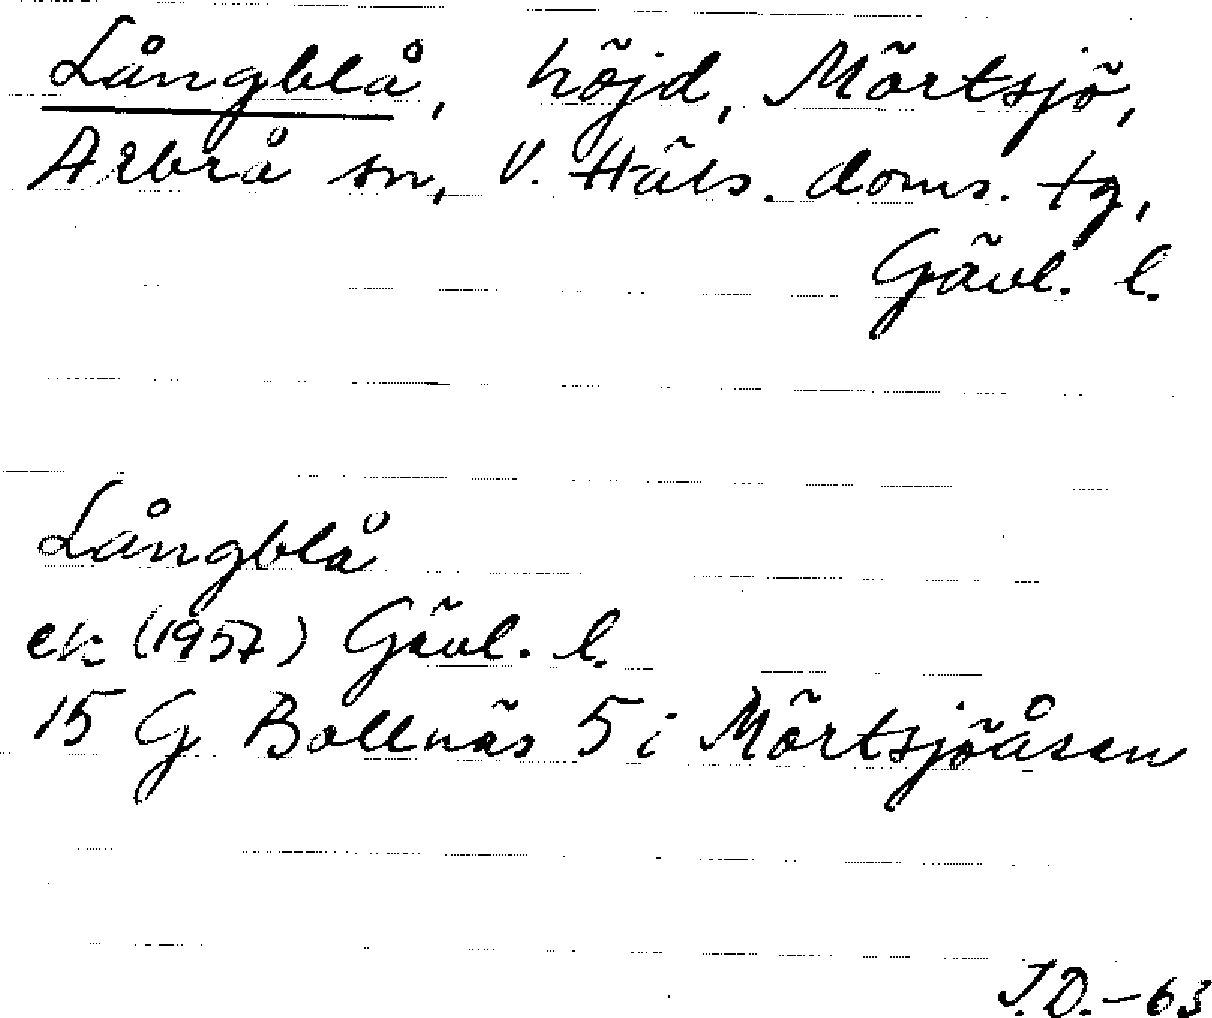 Långblå, höjd, Mörtsjö,
Arbrå sn, V. Häls. doms. tg,
Gävl. l.
Långblå
ek (1957) Gävl. l.
15 G Bollnäs 5 i Mörtsjöåsen
J.D.-63